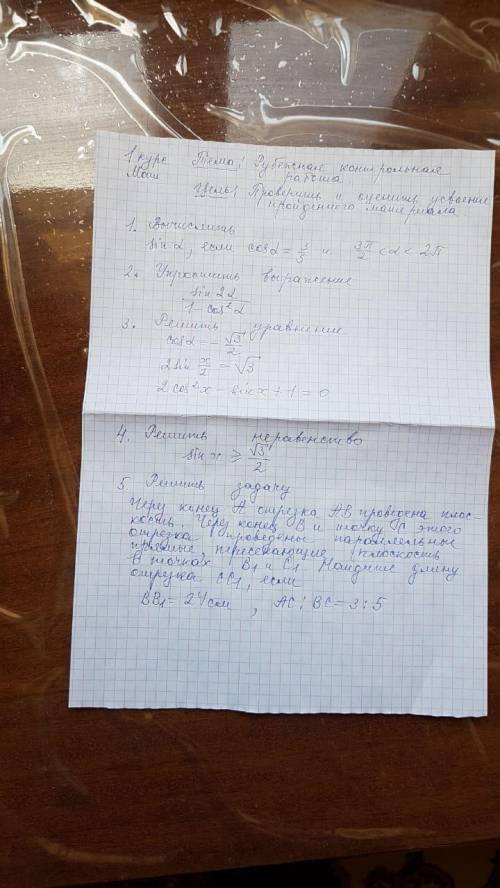 1 курс Тема: Рубежная контрольная
работа
Цель: Проверить и оценить усвоение
пройденного материала
1. Вычислить
sin α, если cos α = 3/5 и 3π/2 < α < 2π
2. Упростить выражение
sin 2α / 1 - cos² α
3. Решить уравнение
cos α = - √3/2
2 sin x/2 = √3
2 cos² x - sin x + 1 = 0
4. Решить неравенство
sin x ≥ √3/2
5. Решить задачу
Через конец А отрезка АВ проведена плос-
кость. Через конец В и точку С этого
отрезка проведены параллельные
прямые, пересекающие плоскость
в точках В₁ и С₁. Найдите длину
отрезка СС₁, если
ВВ₁ = 24 см, АС : ВС = 3 : 5